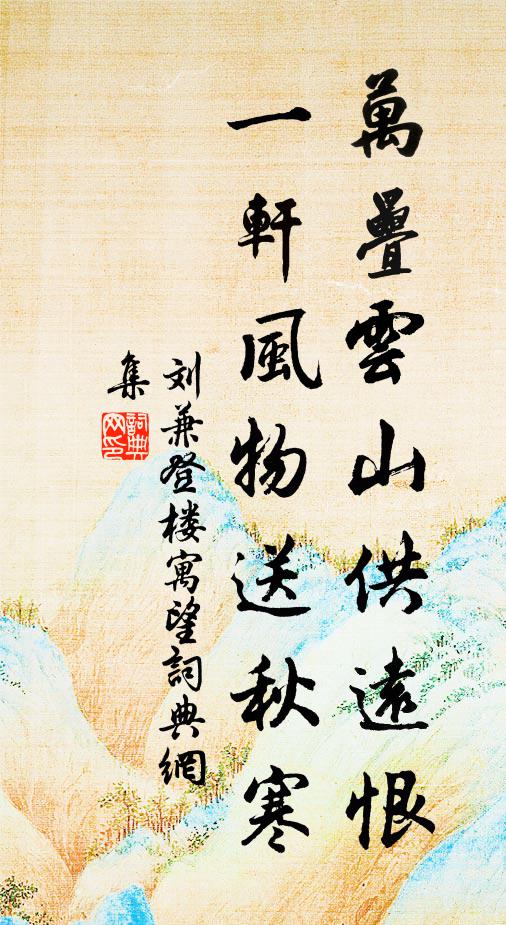 萬疊雲山供遠恨
一軒風物送秋寒
刘兼登楼寓望詞典網
集
詞典
网印